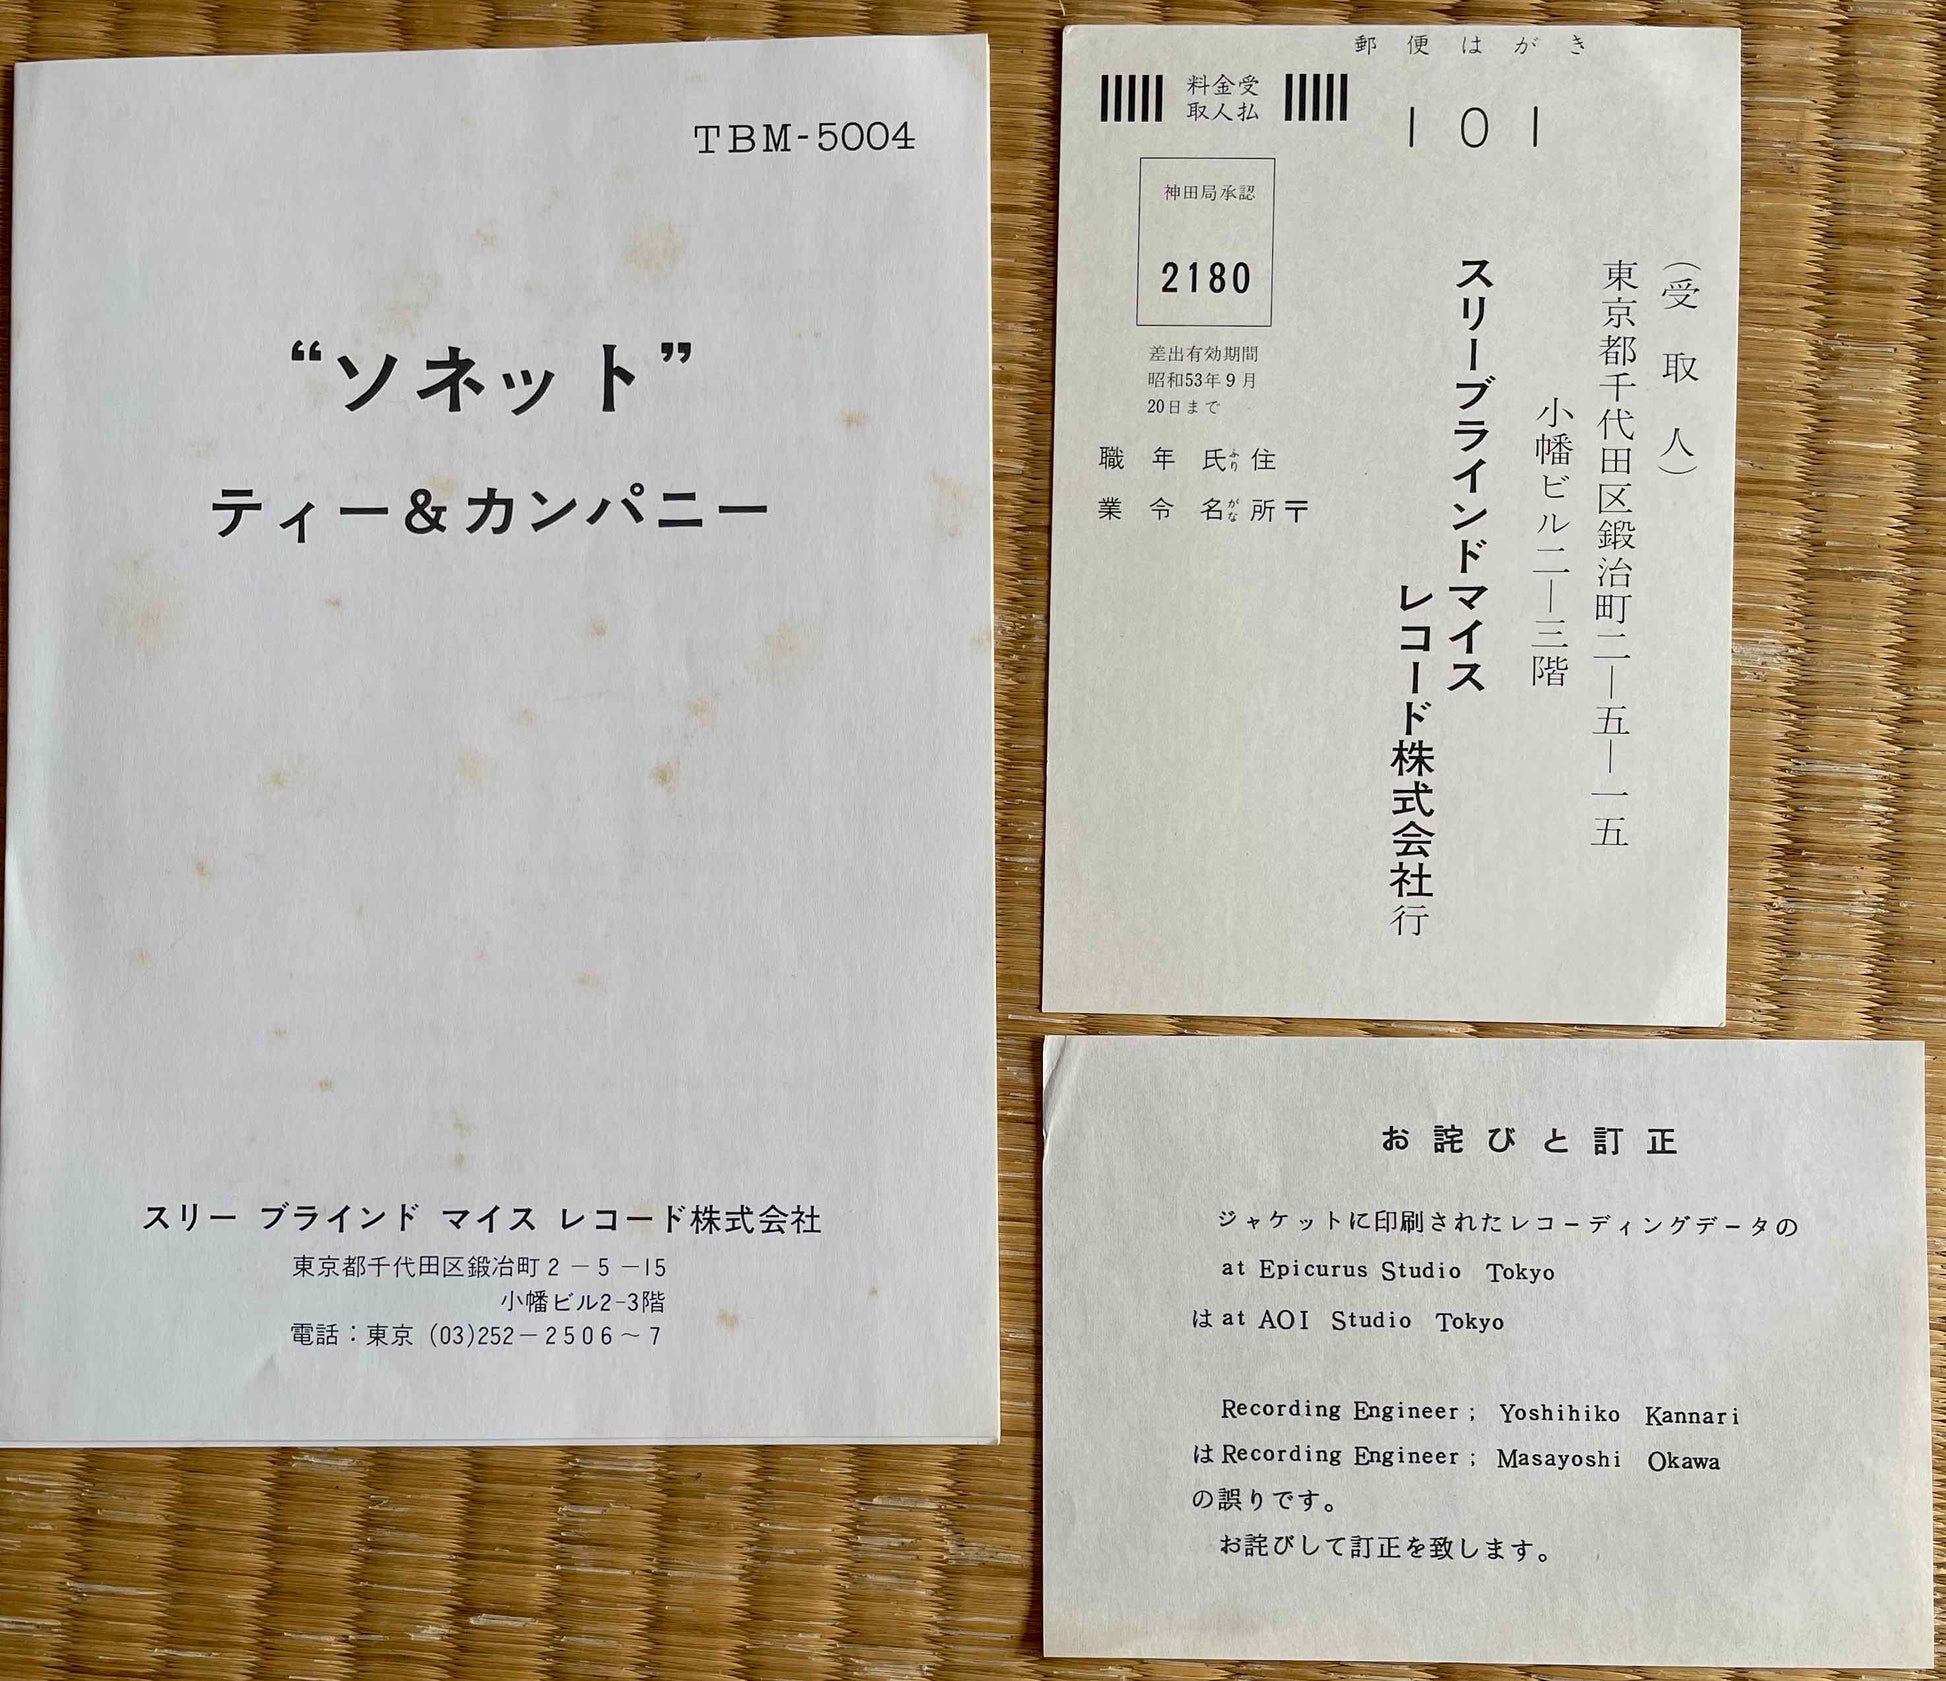 TBM-5004
“ソネット”
ティー＆カンパニー
スリー ブラインド マイス レコード株式会社
東京都千代田区鍛冶町2－5－15
小幡ビル2-3階
電話：東京 (03)252－2506～7
郵便はがき
料金受
取人払
101
神田局承認
2180
差出有効期間
昭和53年9月
20日まで
（受取人）
東京都千代田区鍛冶町二－五－一五
小幡ビル二－三階
スリーブラインドマイス
レコード株式会社行
住所〒
氏名ふりがな
年令
職業
お詫びと訂正
ジャケットに印刷されたレコーディングデータの
at Epicurus Studio Tokyo
は at AOI Studio Tokyo
Recording Engineer; Yoshihiko Kannari
は Recording Engineer; Masayoshi Okawa
の誤りです。
お詫びして訂正を致します。